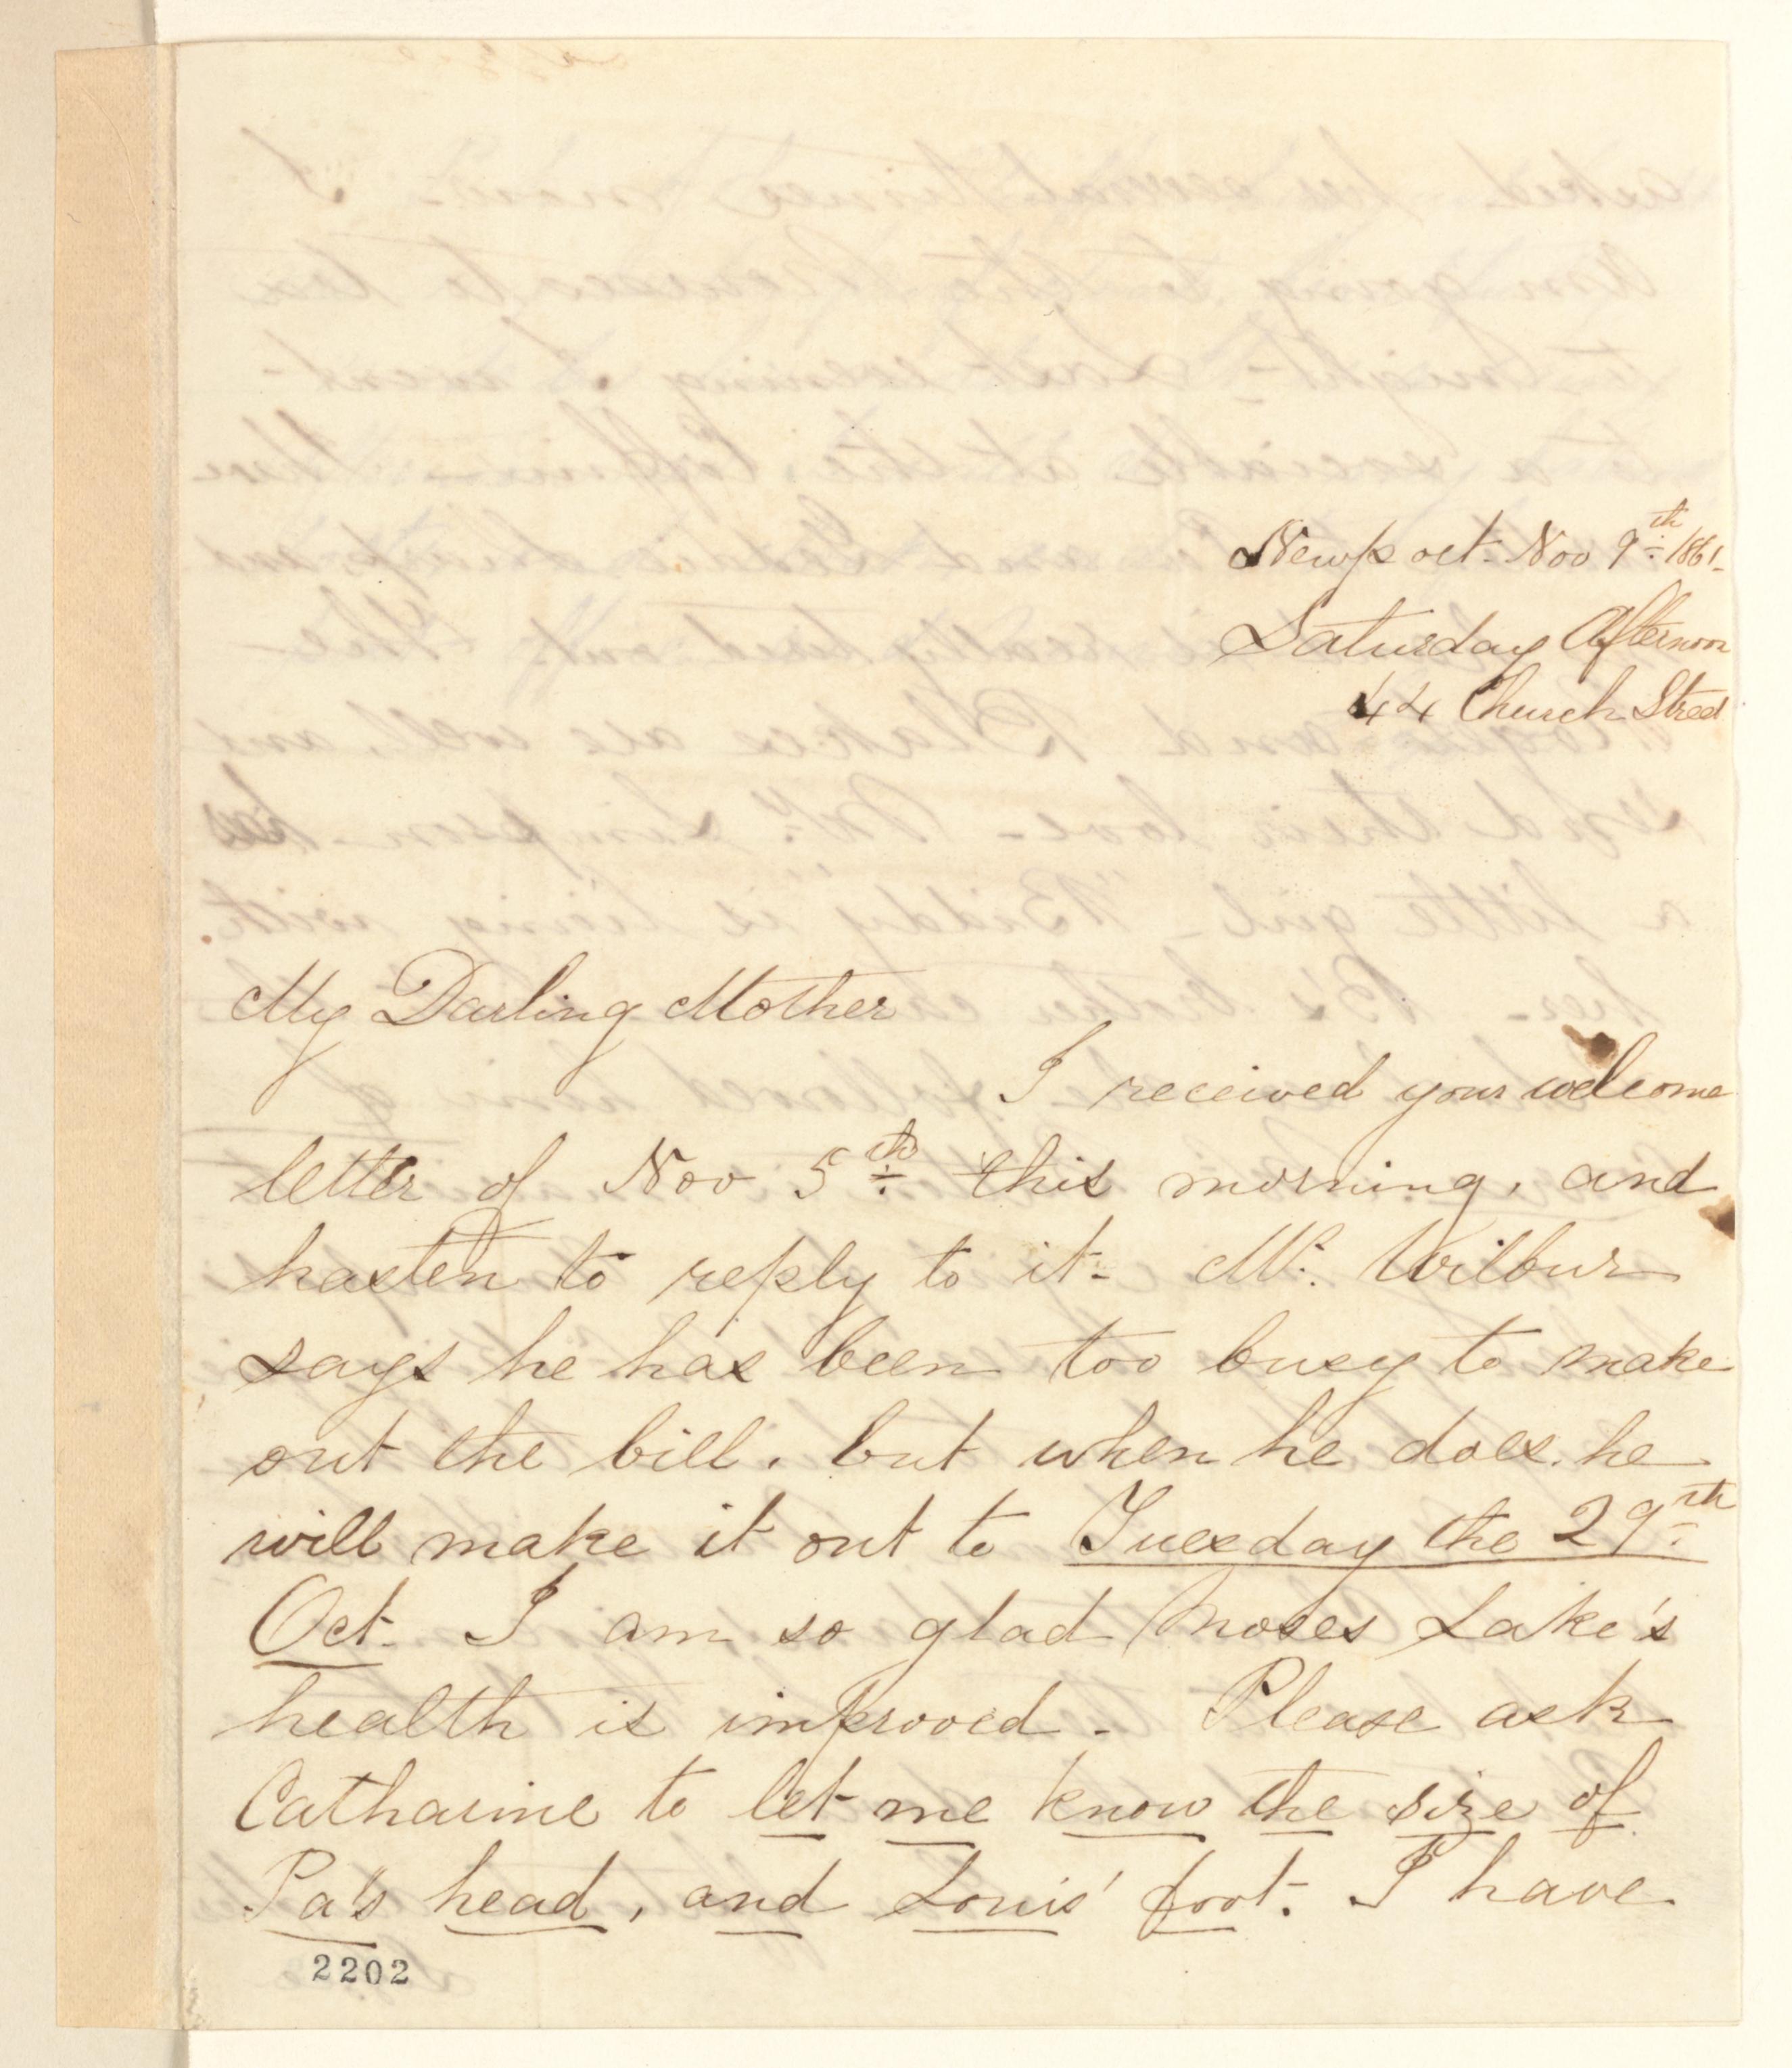 Newport. Nov 9th 1861-
Saturday Afternoon
44 Church Street
My Darling Mother
I received your welcome
letter of Nov 5th this morning, and
hasten to reply to it- Mr. Wilbur
says he has been too busy to make
out the bill. but when he does. he
will make it out to Tuesday the 29th
Oct- I am so glad Moses Lake's
health is improved- Please ask
Catharine to let me know the size of
Pa's head, and Louis' foot. I have
2202